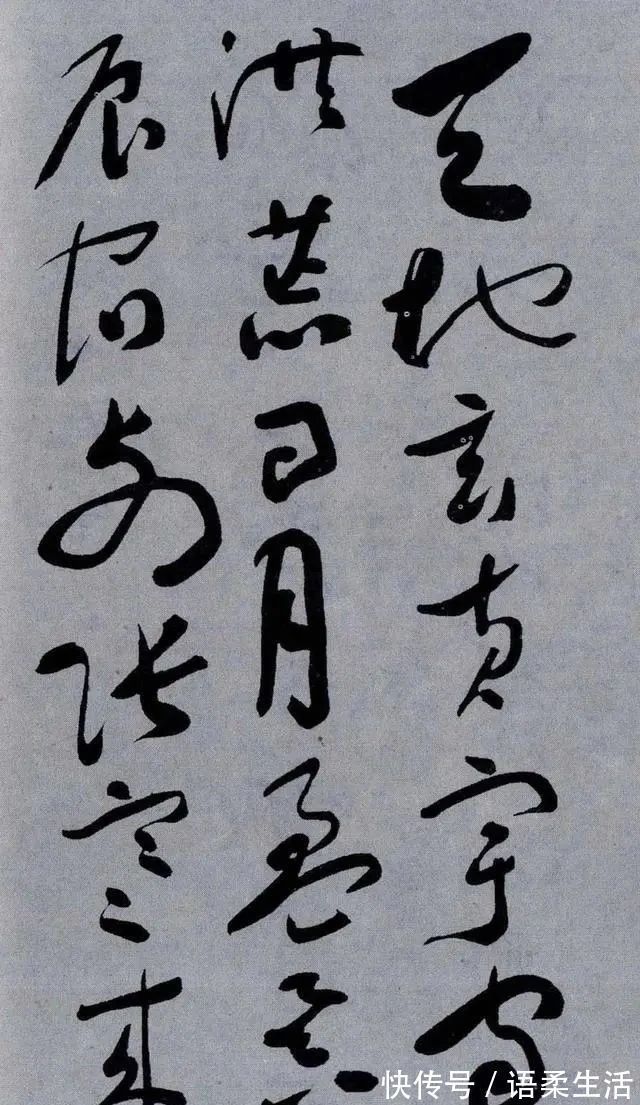 天地玄黄宇宙
洪荒日月盈昃
辰宿列张寒来
快传号/语柔生活